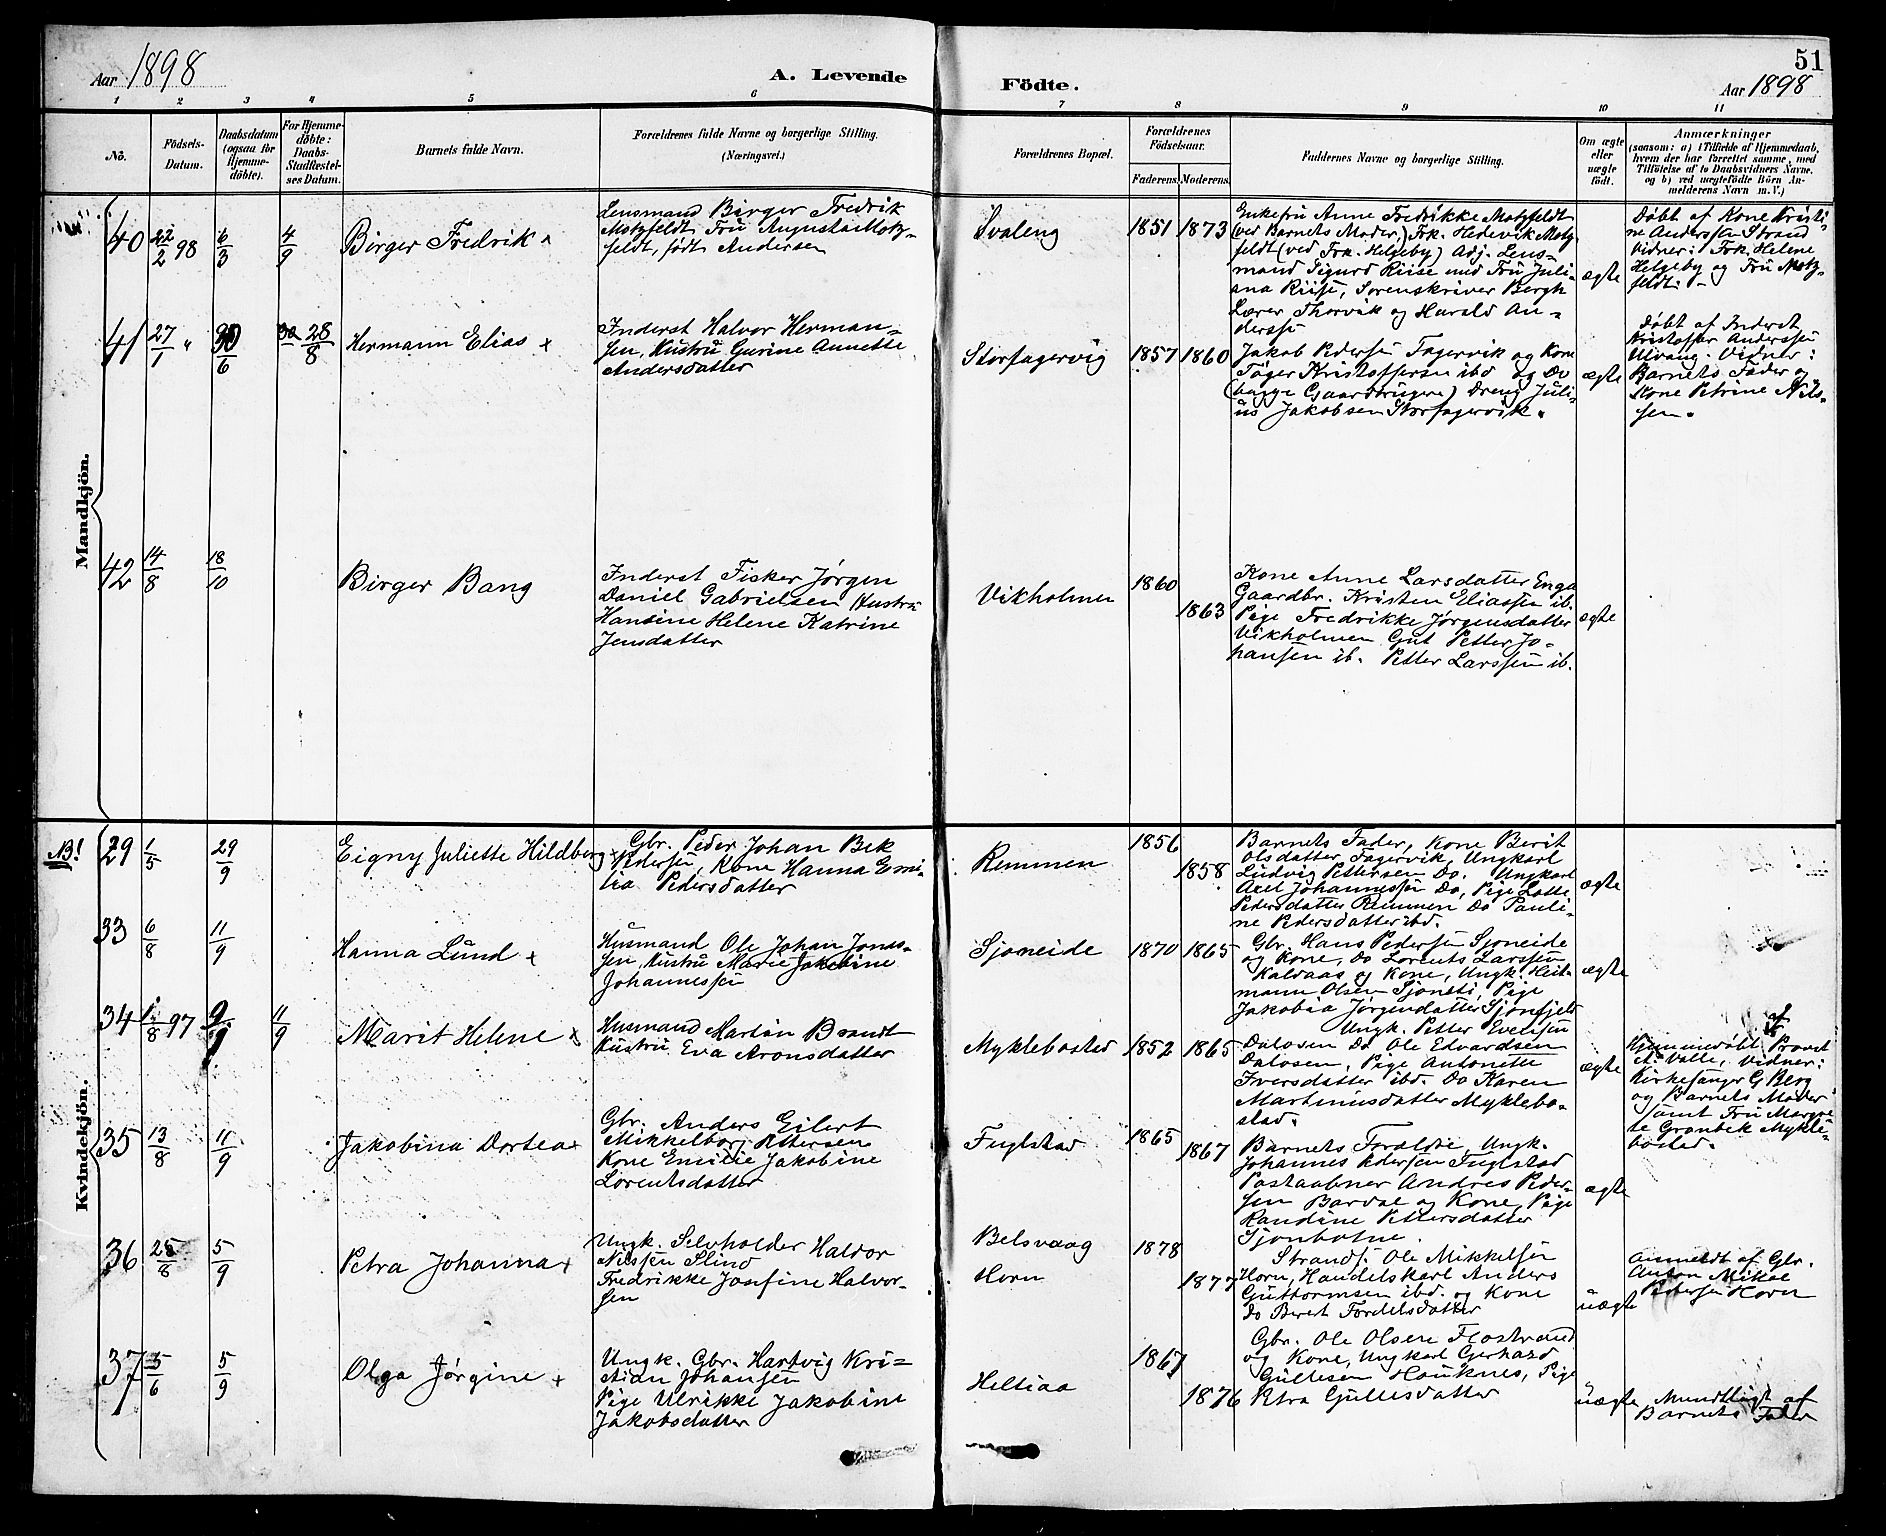 Aar 1898
A. Levende
Födte.
51
Aar 1898
1 2 3 4 5 6 7 8 9 10 11
No.
Födsels-
Datum.
Daabsdatum
(ogsaa for
Hjemme-
döbte).
For Hjemme-
döbte:
Daabs-
Stadfæstel-
ses Datum.
Barnets fulde Navn.
Forældrenes fulde Navne og borgerlige Stilling.
(Næringsvei.)
Forældrenes Bopæl.
Forældrenes
Födselsaar.
Faderens. Moderens.
Faddernes Navne og borgerlige Stilling.
Om ægte
eller
uægte
födt.
Anmærkninger
(saasom: a) i Tilfælde af Hjemmedaab,
hvem der har forrettet samme, med
Tilföielse af to Daabsvidners Navne.
og b) ved uægtefödte Börn An-
melderens Navn m. V.)
Mandkjön.
40 22/2 98 6/3 4/9
Birger Fredrik
Lensmand Birger Fredrik
Motzfeldt Fru Augusta Motz-
feldt, født Andersen
Svaleng
1851 1873
Enkefru Anne Fredrikke Motzfeldt
(ved Barnets Moder,) Frk. Hedevik Motz-
feldt (ved Frk. Helgeby) Adj. Lens-
mand Sigurd Riise med Fru Juli-
ana Riise, Sorenskriver Bergh
Lærer Thorvik og Harald An-
derssen
ægte
Døbt af Kone Kristi-
ne Anderssen Strand
Vidner: Frk. Helene
Helgeby og Fru Motz-
feldt. -
41 27/1 " 28/8
Hermann Elias +
Inderst Halvor Herman-
sen, Hustru Gurine Annette
Andersdatter
Storfagervig
1857 1860
Jakob Pedersen Fagervik og Kone
Tøger Kristoffersen ibd og Do
(begge Gaardbrugere) Dreng Juli-
us Jakobsen Storfagervik.
ægte
Døbt af Inderst
Kristoffer Anderssen
Utvang. Vidner:
Barnets Fader og
Kone Petrine Nils-
sen.
42 14/8 18/10
Birger Bang
Inderst Fisker Jørgen
Daniel Gabrielsen Hustru
Hansine Helene Katrine
Jensdatter
Vikholmen
1860
1863
Kone Anne Larsdatter Enga
Gaardbr. Kristen Eliassen ib.
Pige Fredrikke Jørgensdatter
Vikholmen Gut Petter Jo-
hansen ib. Petter Larssen ib.
ægte
Kvindekjön.
NB!
29 1/5 29/9
Eigny Juliette Hildborg
Gbr. Peder Johan Bek
Pedersen, Kone Hanna Emi-
lia Pedersdatter
Remmen
1856
1858
Barnets Fader, Kone Berit
Olsdatter Fagervik, Ungkarl
Ludvig Pettersen Do. Ungkarl
Axel Johannessen Do, Pige Lotte
Pedersdatter Remmen Do Pauli-
ne Pedersdatter ibd.
ægte
33 6/8 11/9
Hanna Lund +
Husmand Ole Johan Jonas-
sen, Hustru Marie Jakobine
Johannessen
Sjoneide
1870 1865
Gbr. Hans Pedersen Sjoneide
og Kone, Do Lorents Larssen
Kaldaas og Kone, Ungk.
mann Olsen Sjoneti, Pige
Jakobia Jørgendatter Sjonfjeld
ægte
34 1/8 97 9/9 11/9
Marit Helene
Husmand Martin Brandt
Hustru Eva Aronsdatter
Myklebostad
1852 1865
Ungk. Petter Evensen
Dalosen Do Ole Edvardsen
Dalosen, Pige Antonette
Iversdatter ibd. Do Karen
Martinusdatter Myklebo-
stad.
ægte
af
Hjemmedøbt Provst
A. Valle, Vidner:
Kirkesanger G Berg
og Barnets Moder
samt Fru Margre-
te Grønbek Mykle-
bostad.
35 13/8 11/9
Jakobina Dortea +
Gbr. Anders Eilert
Mikkelborg Pettersen
Kone Emilie Jakobine
Lorentsdatter
Fuglstad
1865
1867
Barnets Forældre, Ungk.
Johannes Pedersen Fuglstad
Postaabner Andreas Peder-
sen Bardal og Kone, Pige
Randine Pettersdatter
Sjonbotne.
ægte
36 25/8 5/9
Petra Johanna +
Ungk. Selvholder Haldor
Nilssen Slind
Fredrikke Josefine Halvor-
sen
Belsvaag
Horn
1878
1877
Strands. Ole Mikkelsen
Horn, Handelskarl Anders
Guttormsen ibd. og Kone
Do Beret Fordelsdatter
uægte
Anmeldt af Gbr.
Anton Mikal
Pedersen Horn
37 5/6 5/9
Olga Jørgine +
Ungk. Gbr. Hartvig Kri-
stian Johansen
Pige Ulrikke Jakobine
Jakobsdatter
Heltiaa
1867
1876
Gbr. Ole Olsen Flostrand
og Kone, Ungkarl Gerhard
Gullesen Hauknes, Pige
Petra Gullesdatter
uægte
Mundtligt af
Barnets Fader